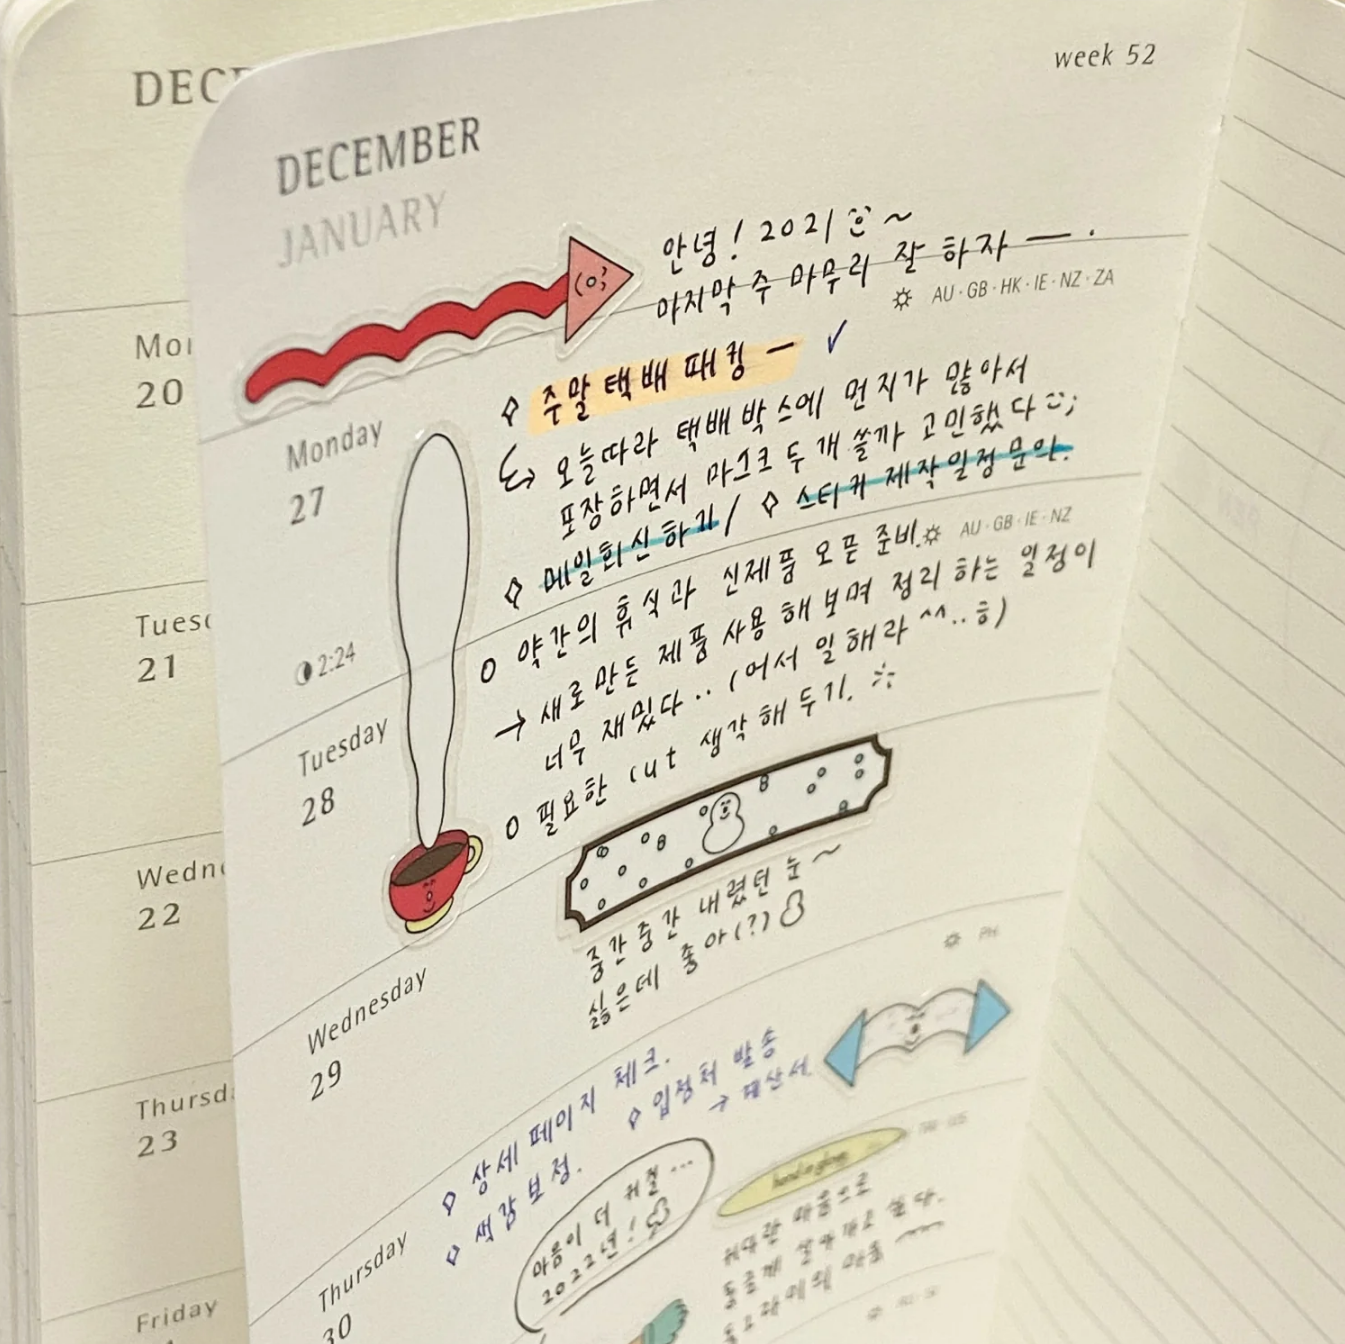 DECE
week 52
DECEMBER
JANUARY
안녕! 2021 ~
마지막 주 마무리 잘 하자 — .
AU · GB · HK · IE · NZ · ZA
Mon
20
Monday
27
주말 택배 패킹 —
오늘따라 택배 박스에 먼지가 많아서
포장하면서 마스크 두 개 쓸까 고민했다
메일 회신하기 / 스티커 제작일정 문의.
AU · GB · IE · NZ
2:24
Tuesd
21
Tuesday
28
약간의 휴식과 신제품 오픈 준비.
→ 새로 만든 제품 사용 해 보며 정리 하는 일정이
너무 재밌다.. (어서 일 해라 ^^..ㅎ)
필요한 cut 생각 해 두기.
Wedne
22
Wednesday
29
중간중간 내렸던 눈~
싫은데 좋아(?)
PH
Thursd
23
Thursday
30
상세 페이지 체크.
입점처 발송
→ 계산서
색감 보정.
마음이 더 커질...
2022년!
커다란 마음으로
둥글게 살아가고 싶다.
Friday